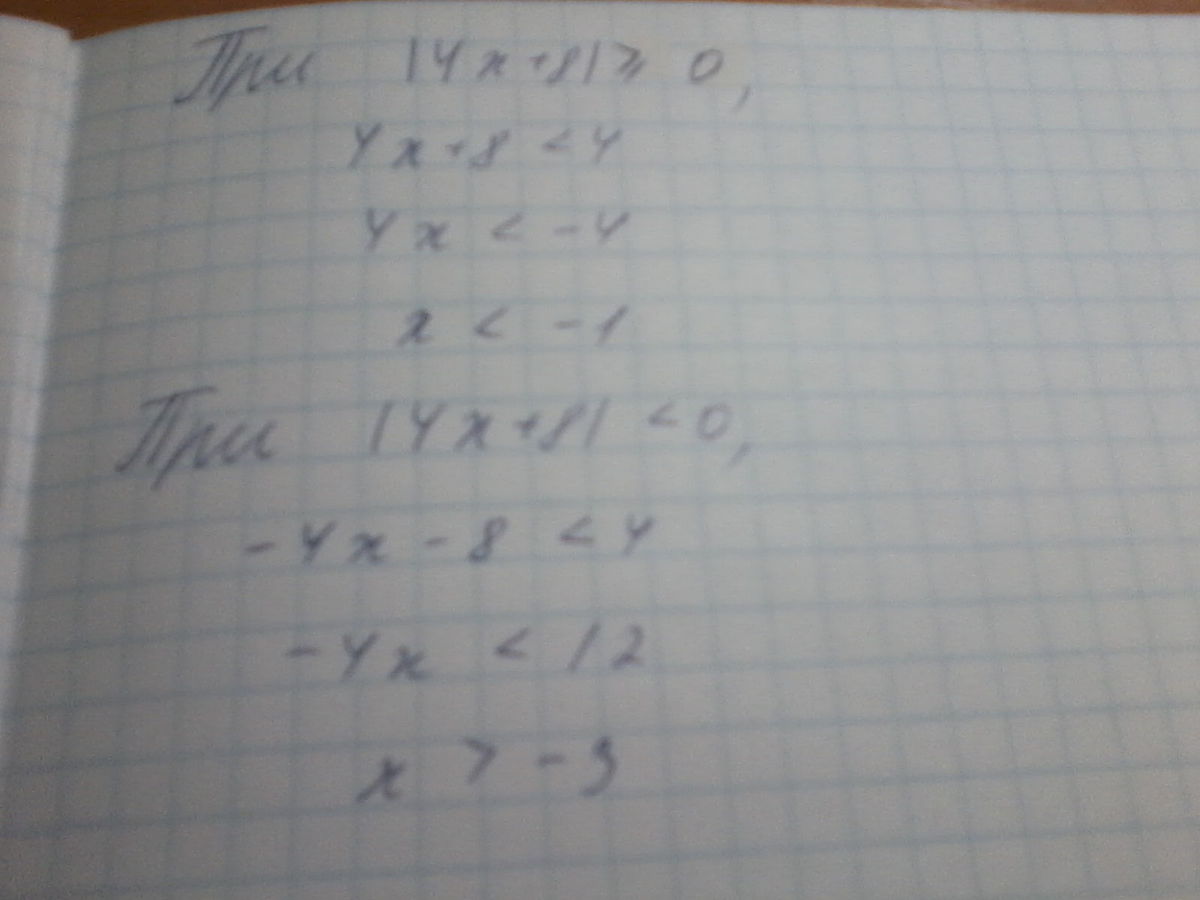 При |4x+8| ≥ 0,
4x+8 < 4
4x < -4
x < -1
При |4x+8| < 0,
-4x - 8 < 4
-4x < 12
x > -3